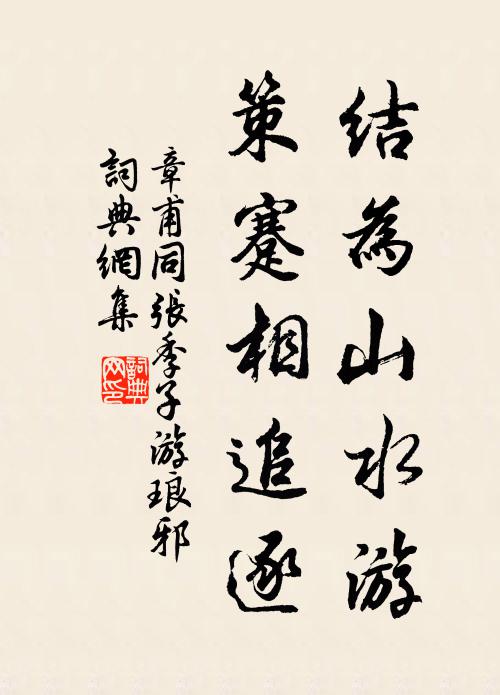 結為山水游
策蹇相追逐
章甫同張季子游琅邪
詞典網集
詞典網印